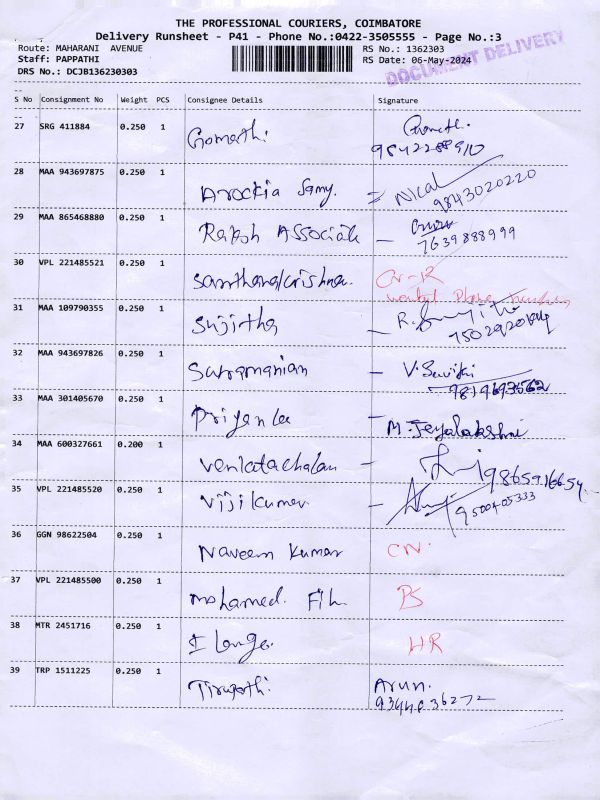 THE PROFESSIONAL COURIERS, COIMBATORE
Delivery Runsheet - P41 - Phone No.:0422-3505555 - Page No.:3
Route: MAHARANI AVENUE RS No.: 1362303
Staff: PAPPATHI RS Date: 06-May-2024
DRS No.: DCJB136230303
DOCUMENT DELIVERY
S No Consignment No Weight PCS Consignee Details Signature
27 SRG 411884 0.250 1 Gomathi. Gometh.
9842288910
28 MAA 943697875 0.250 1 Arockia Samy. = Nical
9843020220
29 MAA 865468880 0.250 1 Associate -
7639888999
30 VPL 221485521 0.250 1 Santhanakrishnan. CN-R
31 MAA 109790355 0.250 1 Sujitha - R.
32 MAA 943697826 0.250 1 Sutramanian - V.
33 MAA 301405670 0.250 1 Priyanka - M. Jeyalakshmi
34 MAA 600327661 0.200 1 Venkatachalam -
35 VPL 221485520 0.250 1 Vijikumar. -
9500405333
36 GGN 98622504 0.250 1 Naveen Kumar CN.
37 VPL 221485500 0.250 1 Mohamed. PS
38 MTR 2451716 0.250 1 HR
39 TRP 1511225 0.250 1 Tirupathi. Arun.
9344836272